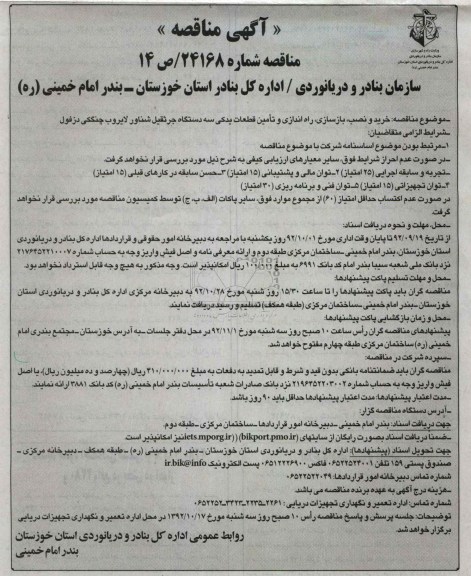 « آگهی مناقصه »
مناقصه شماره ۲۴۱۶۸/ص ۱۴
سازمان بنادر و دریانوردی / اداره کل بنادر استان خوزستان ـ بندر امام خمینی (ره)
ـ موضوع مناقصه: خرید و نصب، بازسازی، راه اندازی و تأمین قطعات یدکی سه دستگاه جرثقیل شناور لایروب چنگکی دزفول
ـ شرایط الزامی متقاضیان:
۱ـ مرتبط بودن موضوع اساسنامه شرکت با موضوع مناقصه
ـ در صورت عدم احراز شرایط فوق، سایر معیارهای ارزیابی کیفی به شرح ذیل مورد بررسی قرار نخواهد گرفت.
۱ـ تجربه و سابقه اجرایی (۲۵ امتیاز) ۲ـ توان مالی و پشتیبانی (۱۵ امتیاز) ۳ـ حسن سابقه در کارهای قبلی (۱۵ امتیاز)
۴ـ توان تجهیزاتی (۱۵ امتیاز) ۵ـ توان فنی و برنامه ریزی (۳۰ امتیاز)
در صورت عدم اکتساب حداقل امتیاز (۶۰) از مجموع موارد فوق، سایر پاکات (الف، ب، ج) توسط کمیسیون مناقصه مورد بررسی قرار نخواهد گرفت.
ـ محل، مهلت و نحوه دریافت اسناد:
از تاریخ ۹۲/۰۹/۱۹ تا پایان وقت اداری مورخ ۹۲/۱۰/۰۱ روز یکشنبه با مراجعه به دبیرخانه امور حقوقی و قراردادها اداره کل بنادر و دریانوردی
استان خوزستان ـ بندر امام خمینی ـ ساختمان مرکزی طبقه دوم و ارائه معرفی نامه و اصل فیش واریز وجه به حساب شماره ۲۱۷۶۴۵۲۲۱۰۰۰۷
نزد بانک ملی شعبه سیبا بندر امام کد بانک ۶۹۹۱ به مبلغ ریال امکانپذیر است. وجه مذکور به هیچ وجه قابل استرداد نخواهد بود.
ـ محل و مهلت تسلیم پاکت پیشنهادها:
مناقصه گران باید پاکت پیشنهادها را تا ساعت ۱۵/۳۰ روز شنبه مورخ ۹۲/۱۰/۲۸ به دبیرخانه مرکزی اداره کل بنادر و دریانوردی استان
خوزستان ـ بندر امام خمینی ـ ساختمان مرکزی (طبقه همکف) تسلیم و رسید دریافت نمایند.
ـ محل و زمان بازگشایی پاکت پیشنهادها:
پیشنهادهای مناقصه گران رأس ساعت ۱۰ صبح روز سه شنبه مورخ ۹۲/۱۱/۱ در محل دفتر جلسات ـ به آدرس خوزستان ـ مجتمع بندری امام
خمینی (ره) ساختمان مرکزی طبقه چهارم مفتوح خواهد شد.
ـ سپرده شرکت در مناقصه:
مناقصه گران باید ضمانتنامه بانکی بدون قید و شرط و قابل تمدید به دفعات به مبلغ ریال (چهارصد و ده میلیون ریال)، یا اصل
فیش واریز وجه به حساب شماره ۲۱۹۶۴۵۲۲۰۳۰۰۲ نزد بانک صادرات شعبه تأسیسات بندر امام خمینی (ره) کد بانک ۳۸۸۱ ارائه نمایند.
ـ مدت اعتبار پیشنهادها: مدت اعتبار پیشنهادها حداقل باید ۹۰ روز باشد.
ـ آدرس دستگاه مناقصه گزار:
جهت دریافت اسناد: بندر امام خمینی ـ دبیرخانه امور قراردادها ـ ساختمان مرکزی ـ طبقه دوم.
ـ ضمناً دریافت اسناد بصورت رایگان از سایتهای (bikport.pmo.ir) (iets.mporg.ir) نیز امکانپذیر است.
جهت تحویل اسناد (پیشنهادها): اداره کل بنادر و دریانوردی استان خوزستان ـ بندر امام خمینی (ره) ـ طبقه همکف ـ دبیرخانه مرکزی ـ
صندوق پستی ۱۵۹ تلفن ۰۶۵۲۲۵۲۳۰۰۱ فاکس ۰۶۵۱۲۲۲۶۹۰۰ پست الکترونیک ir.bik@info
شماره تماس دبیرخانه امور قراردادها: ۰۶۵۲۲۵۲۲۰۴۹
ـ هزینه درج آگهی به عهده برنده مناقصه می باشد.
شماره تماس: اداره تعمیر و نگهداری تجهیزات دریایی: ۲۲۶۱-۲۲۳۵-۳۴۲۳-۰۶۵۲۲۵۲
توضیحات: جلسه پرسش و پاسخ مناقصه رأس ۱۰ صبح روز سه شنبه مورخ ۱۳۹۲/۱۰/۱۷ در محل اداره تعمیر و نگهداری تجهیزات دریایی
برگزار خواهد شد.
روابط عمومی اداره کل بنادر و دریانوردی استان خوزستان
بندر امام خمینی